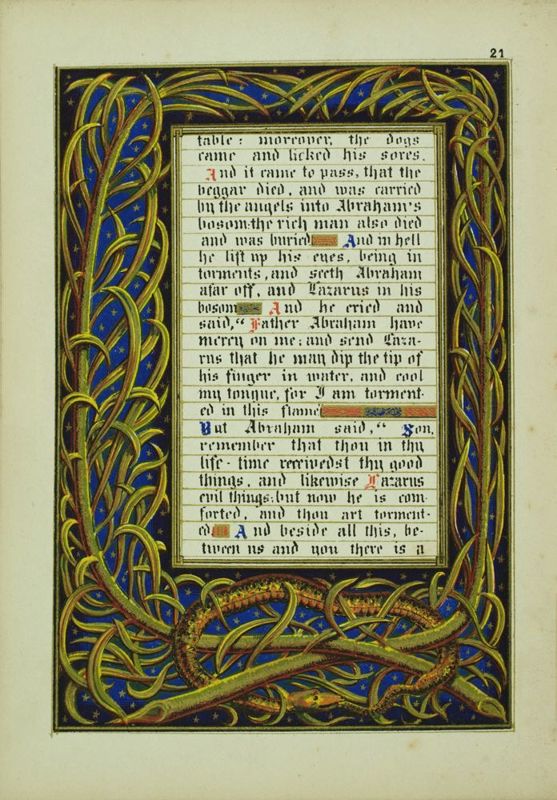 21
table: moreover, the dogs
came and licked his sores.
And it came to pass, that the
beggar died, and was carried
by the angels into Abraham's
bosom: the rich man also died
and was buried And in hell
he lift up his eyes, being in
torments, and seeth Abraham
afar off, and Lazarus in his
bosom And he cried and
said, “Father Abraham have
mercy on me; and send Laza-
rus that he may dip the tip of
his finger in water, and cool
my tongue, for I am torment-
ed in this flame
But Abraham said, “Son,
remember that thou in thy
life-time receivedst thy good
things, and likewise Lazarus
evil things: but now he is com-
forted, and thou art torment-
ed And beside all this, be-
tween us and you there is a